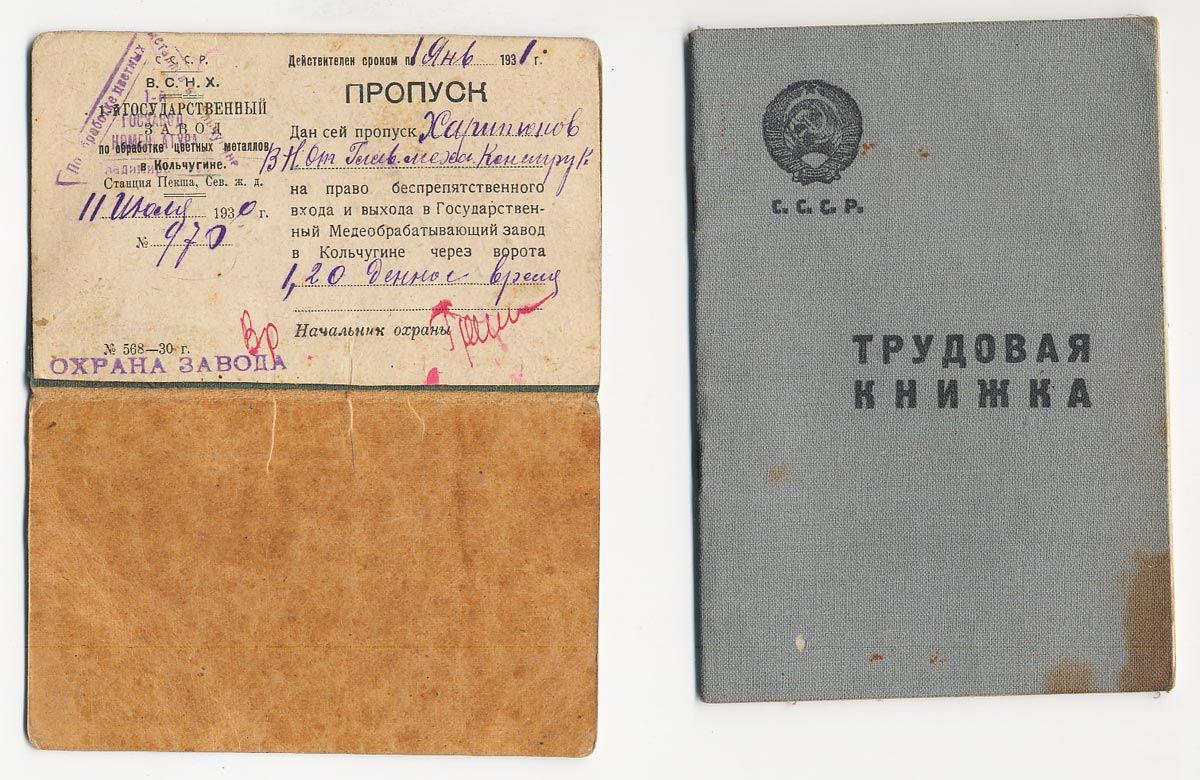 С. С. С. Р.
В. С. Н. Х.
1-й ГОСУДАРСТВЕННЫЙ
ЗАВОД
по обработке цветных металлов
в Кольчугине.
Станция Пекша, Сев. ж. д.
11 Июля 1930 г.
№ 970
№ 568—30 г.
ОХРАНА ЗАВОДА
По обработке цветных
1-й
ГОСЗАВОД
Действителен сроком по 1 Янв 1931 г.
ПРОПУСК
Дан сей пропуск Харитонов
В Н. От Глав. меха. Конструк
на право беспрепятственного
входа и выхода в Государствен-
ный Медеобрабатывающий завод
в Кольчугине через ворота
1, 20 денное время
Начальник охраны
Вр
С. С. С. Р.
ТРУДОВАЯ
КНИЖКА